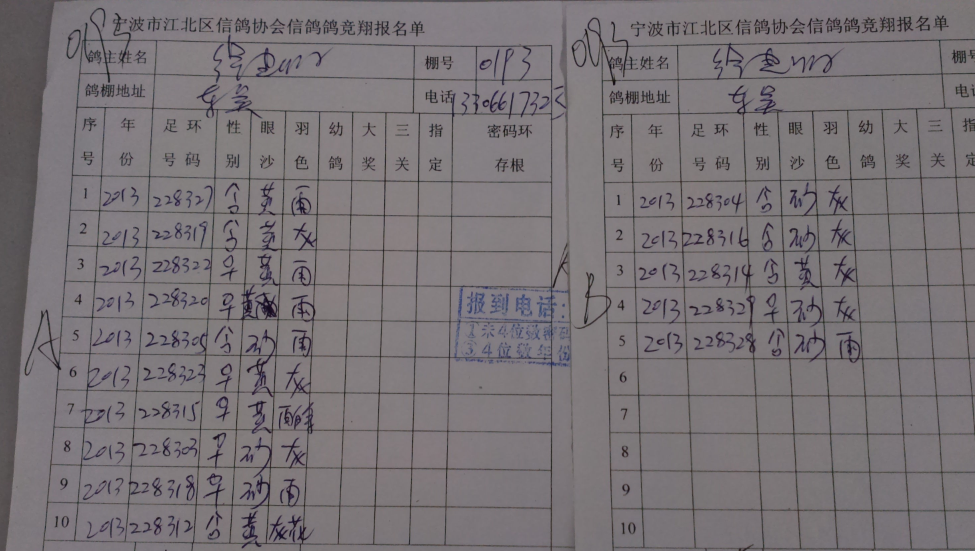 宁波市江北区信鸽协会信鸽鸽竞翔报名单
0193
鸽主姓名 棚号 0193
鸽棚地址 东吴 电话
序号 年份 足环号码 性别 眼沙 羽色 幼鸽 大奖 三关 指定 密码环存根
1 2013 228327 黄 雨
2 2013 228319 黄 灰
3 2013 228322 黄 雨
4 2013 228320 黄 雨
5 2013 228305 砂 雨
6 2013 228323 黄 灰
7 2013 228315 黄
8 2013 228303 砂 灰
9 2013 228318 砂 雨
10 2013 228312 黄 灰花
A
报到电话:
4位数
4位数年份
宁波市江北区信鸽协会信鸽鸽竞翔报名单
0193
鸽主姓名 棚号
鸽棚地址 东吴 电话
序号 年份 足环号码 性别 眼沙 羽色 幼鸽 大奖 三关 指定
1 2013 228304 砂 灰
2 2013 228316 砂 灰
3 2013 228314 黄 灰
4 2013 228329 砂 灰
5 2013 228328 砂 雨
6
7
8
9
10
B